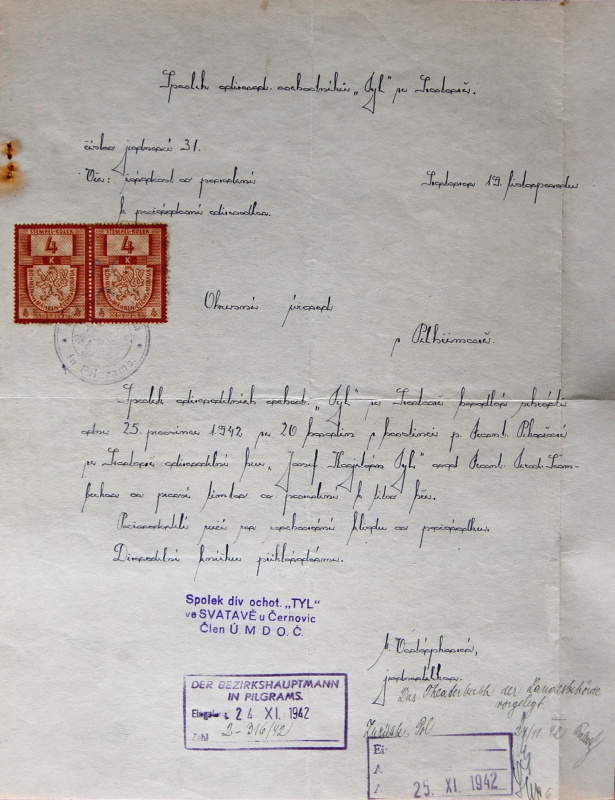 Spolek divad. ochotníků „Tyl" ve Svatavě.
číslo jednací 31.
Věc: žádost o povolení
Svatava 19. listopadu
k pořádání divadla.
STEMPEL-KOLEK
4
K
STEMPEL-KOLEK
4
K
Okresní úřad
v Pelhřimově.
in Pilgrams
Spolek divadelních ochot. „Tyl" ve Svatavě hodlá sehráti
dne 25. prosince 1942 ve 20 hodin v hostinci p. Frant.
ve Svatavě divadelní hru „Josef Kajetán Tyl" od Frant. Ferd. Šam-
berka a prosí tímto o povolení k této hře.
Pořadatelé ručí za zachování klidu a pořádku.
Divadelní knihu přikládáme.
Spolek div ochot. „TYL"
ve SVATAVĚ u Černovic
Člen Ú. M D O. Č.
jednatelka.
DER BEZIRKSHAUPTMANN
IN PILGRAMS.
Eingel.: 24 XI. 1942
Zahl 2-316/42
Das Theaterbuch der Landesbehörde
vorgelegt
24/11. 42
25. XI. 1942